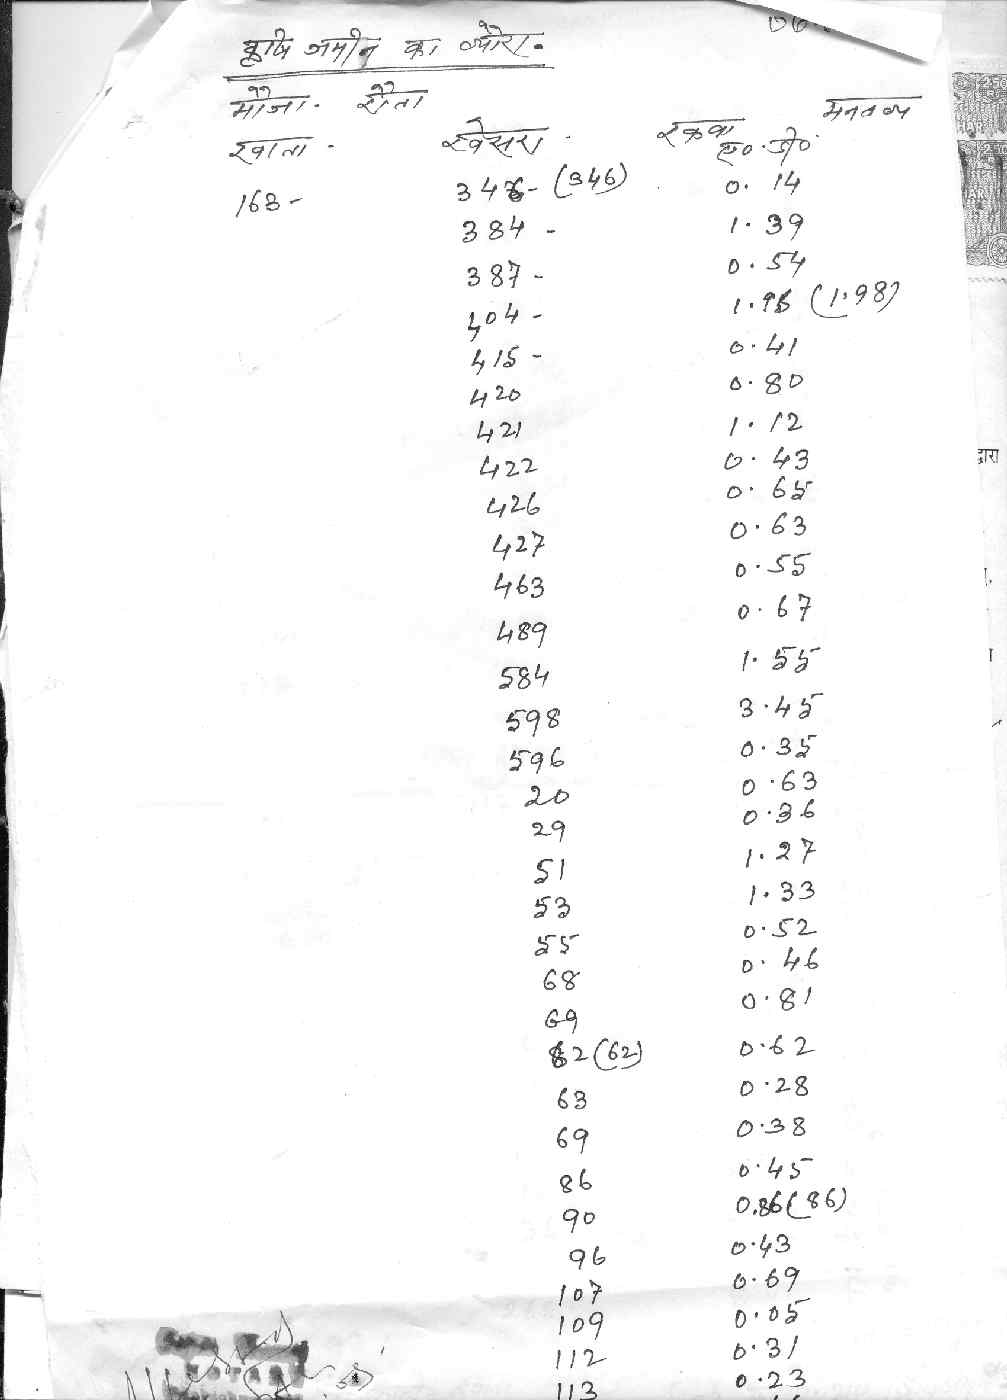 कृषि जमीन का ब्योरा.
मौजा. रौता
खाता. खेसरा. रकवा मनतव्य
ए०.डी०
163- 346- (346) 0.14
384 - 1.39
387- 0.54
404- 1.98 (1.98)
415- 0.41
420 0.80
421 1.12
422 0.43
426 0.65
427 0.63
463 0.55
489 0.67
584 1.55
598 3.45
596 0.35
20 0.63
29 0.36
51 1.27
53 1.33
55 0.52
68 0.46
69 0.81
62 (62) 0.62
63 0.28
69 0.38
86 0.45
90 0.86 (86)
96 0.43
107 0.69
109 0.05
112 0.31
113 0.23
द्वारा